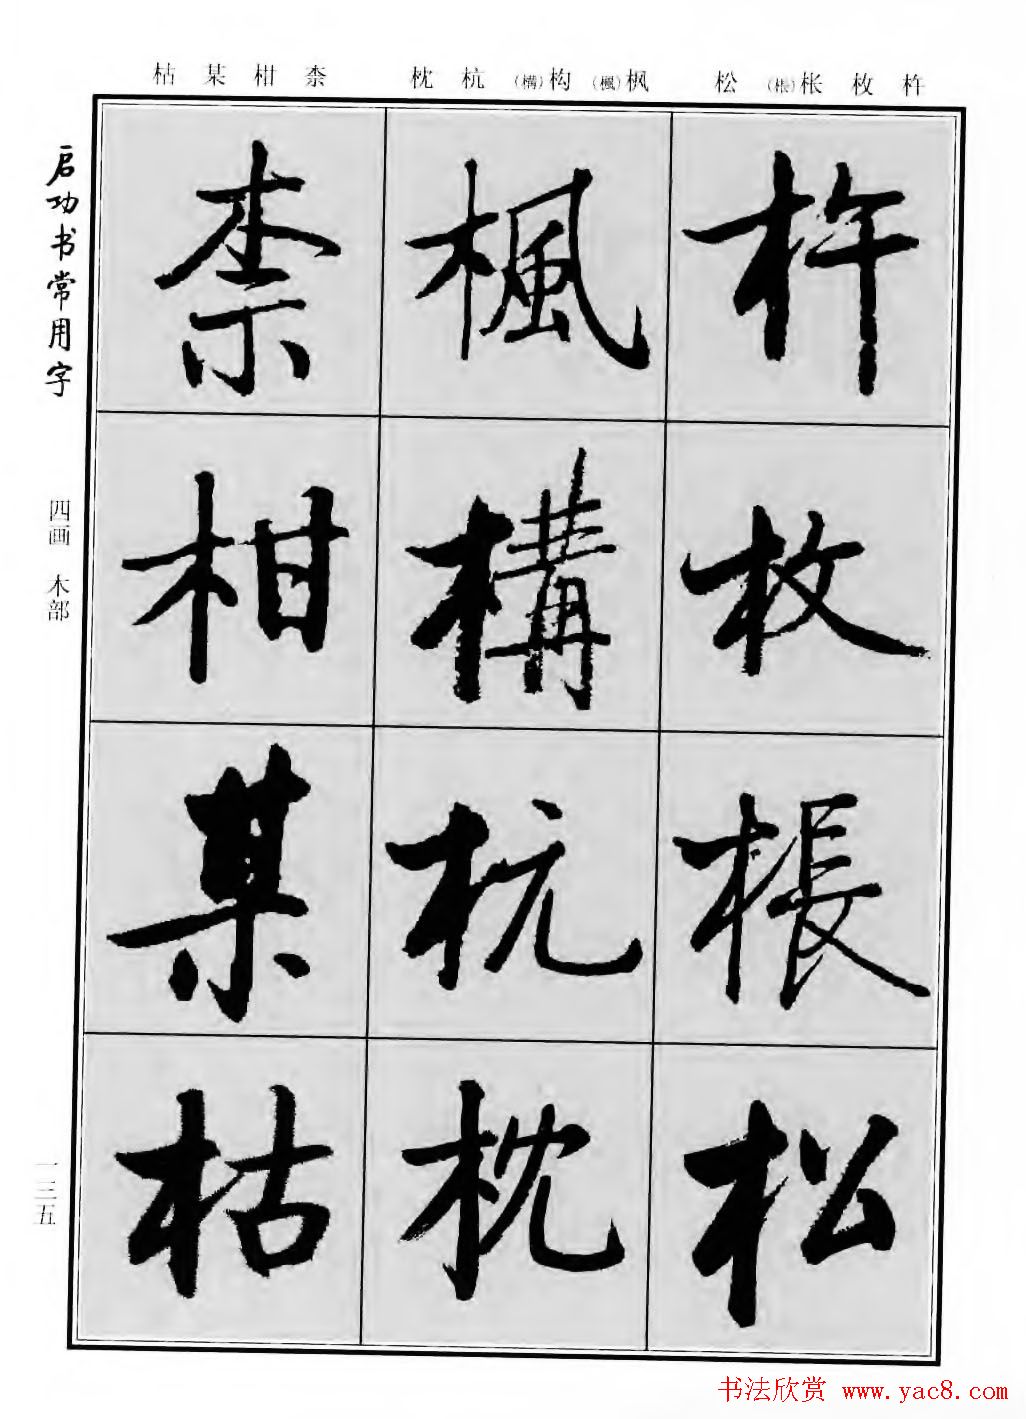 杵枚枨(棖)松
枫(楓)构(構)杭枕
柰柑某枯
杵
枚
棖
松
楓
構
杭
枕
柰
柑
某
枯
启功书常用字
四画 木部
一三五
书法欣赏 www.yac8.com